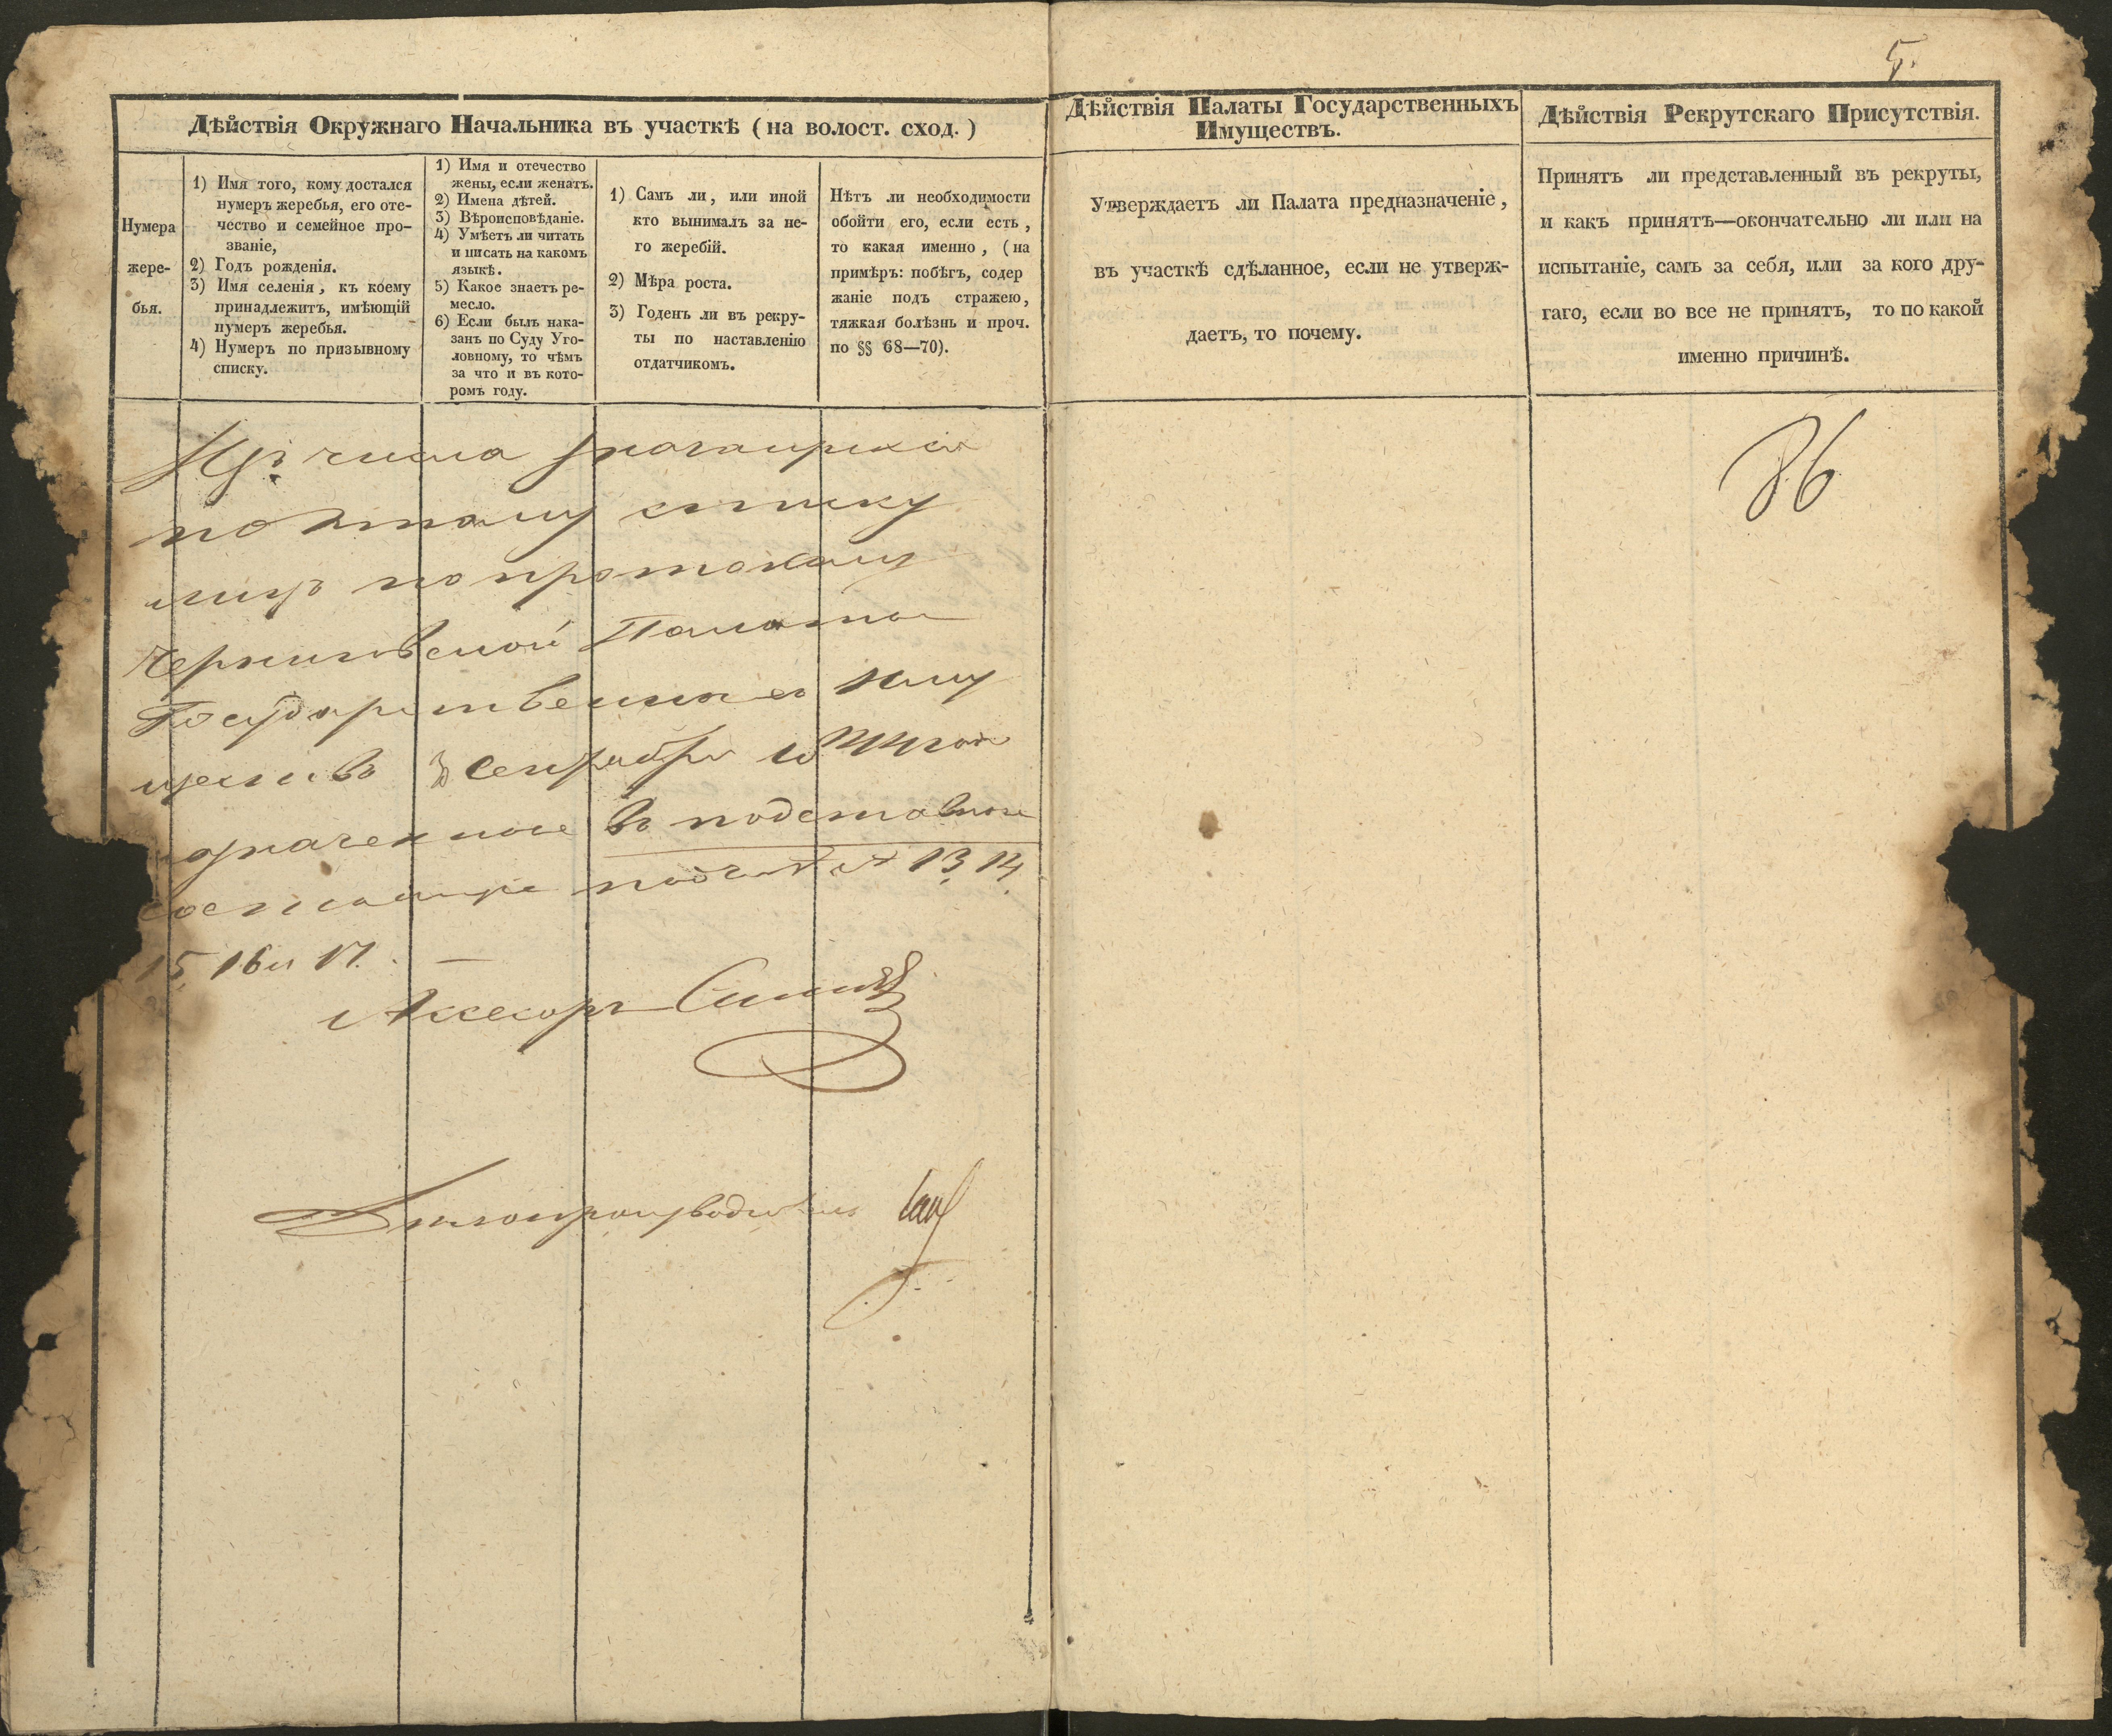 5.
Дѣйствія Окружнаго Начальника въ участкѣ (на волост. сход.)
Нумера
жере-
бья.
1) Имя того, кому достался
нумеръ жеребья, его оте-
чество и семейное про-
званіе,
2) Годъ рожденія.
3) Имя селенія, къ коему
принадлежитъ, имѣющій
нумеръ жеребья.
4) Нумеръ по призывному
списку.
1) Имя и отечество
жены, если женатъ.
2) Имена дѣтей.
3) Вѣроисповѣданіе.
4) Умѣетъ ли читать
и писать на какомъ
языкѣ.
5) Какое знаетъ ре-
месло.
6) Если былъ нака-
занъ по Суду Уго-
ловному, то чѣмъ
за что и въ кото-
ромъ году.
1) Самъ ли, или иной
кто вынималъ за не-
го жеребій.
2) Мѣра роста.
3) Годенъ ли въ рекру-
ты по наставленію
отдатчикомъ.
Нѣтъ ли необходимости
обойти его, если есть,
то какая именно, (на
примѣръ: побѣгъ, содер
жаніе подъ стражею,
тяжкая болѣзнь и проч.
по §§ 68—70).
Дѣйствія Палаты Государственныхъ
Имуществъ.
Утверждаетъ ли Палата предназначеніе,
въ участкѣ сдѣланное, если не утверж-
даетъ, то почему.
Дѣйствія Рекрутскаго Присутствія.
Принятъ ли представленный въ рекруты,
и какъ принятъ—окончательно ли или на
испытаніе, самъ за себя, или за кого дру-
гаго, если во все не принятъ, то по какой
именно причинѣ.
Изъ числа значащихся
по этому списку
лицъ по протоколу
Черниговской Палаты
Государственныхъ Иму
ществъ
въ подставные
состоящіе 13, 14,
15, 16 и 17. —
Ассесоръ
Дѣлопроизводитель
86